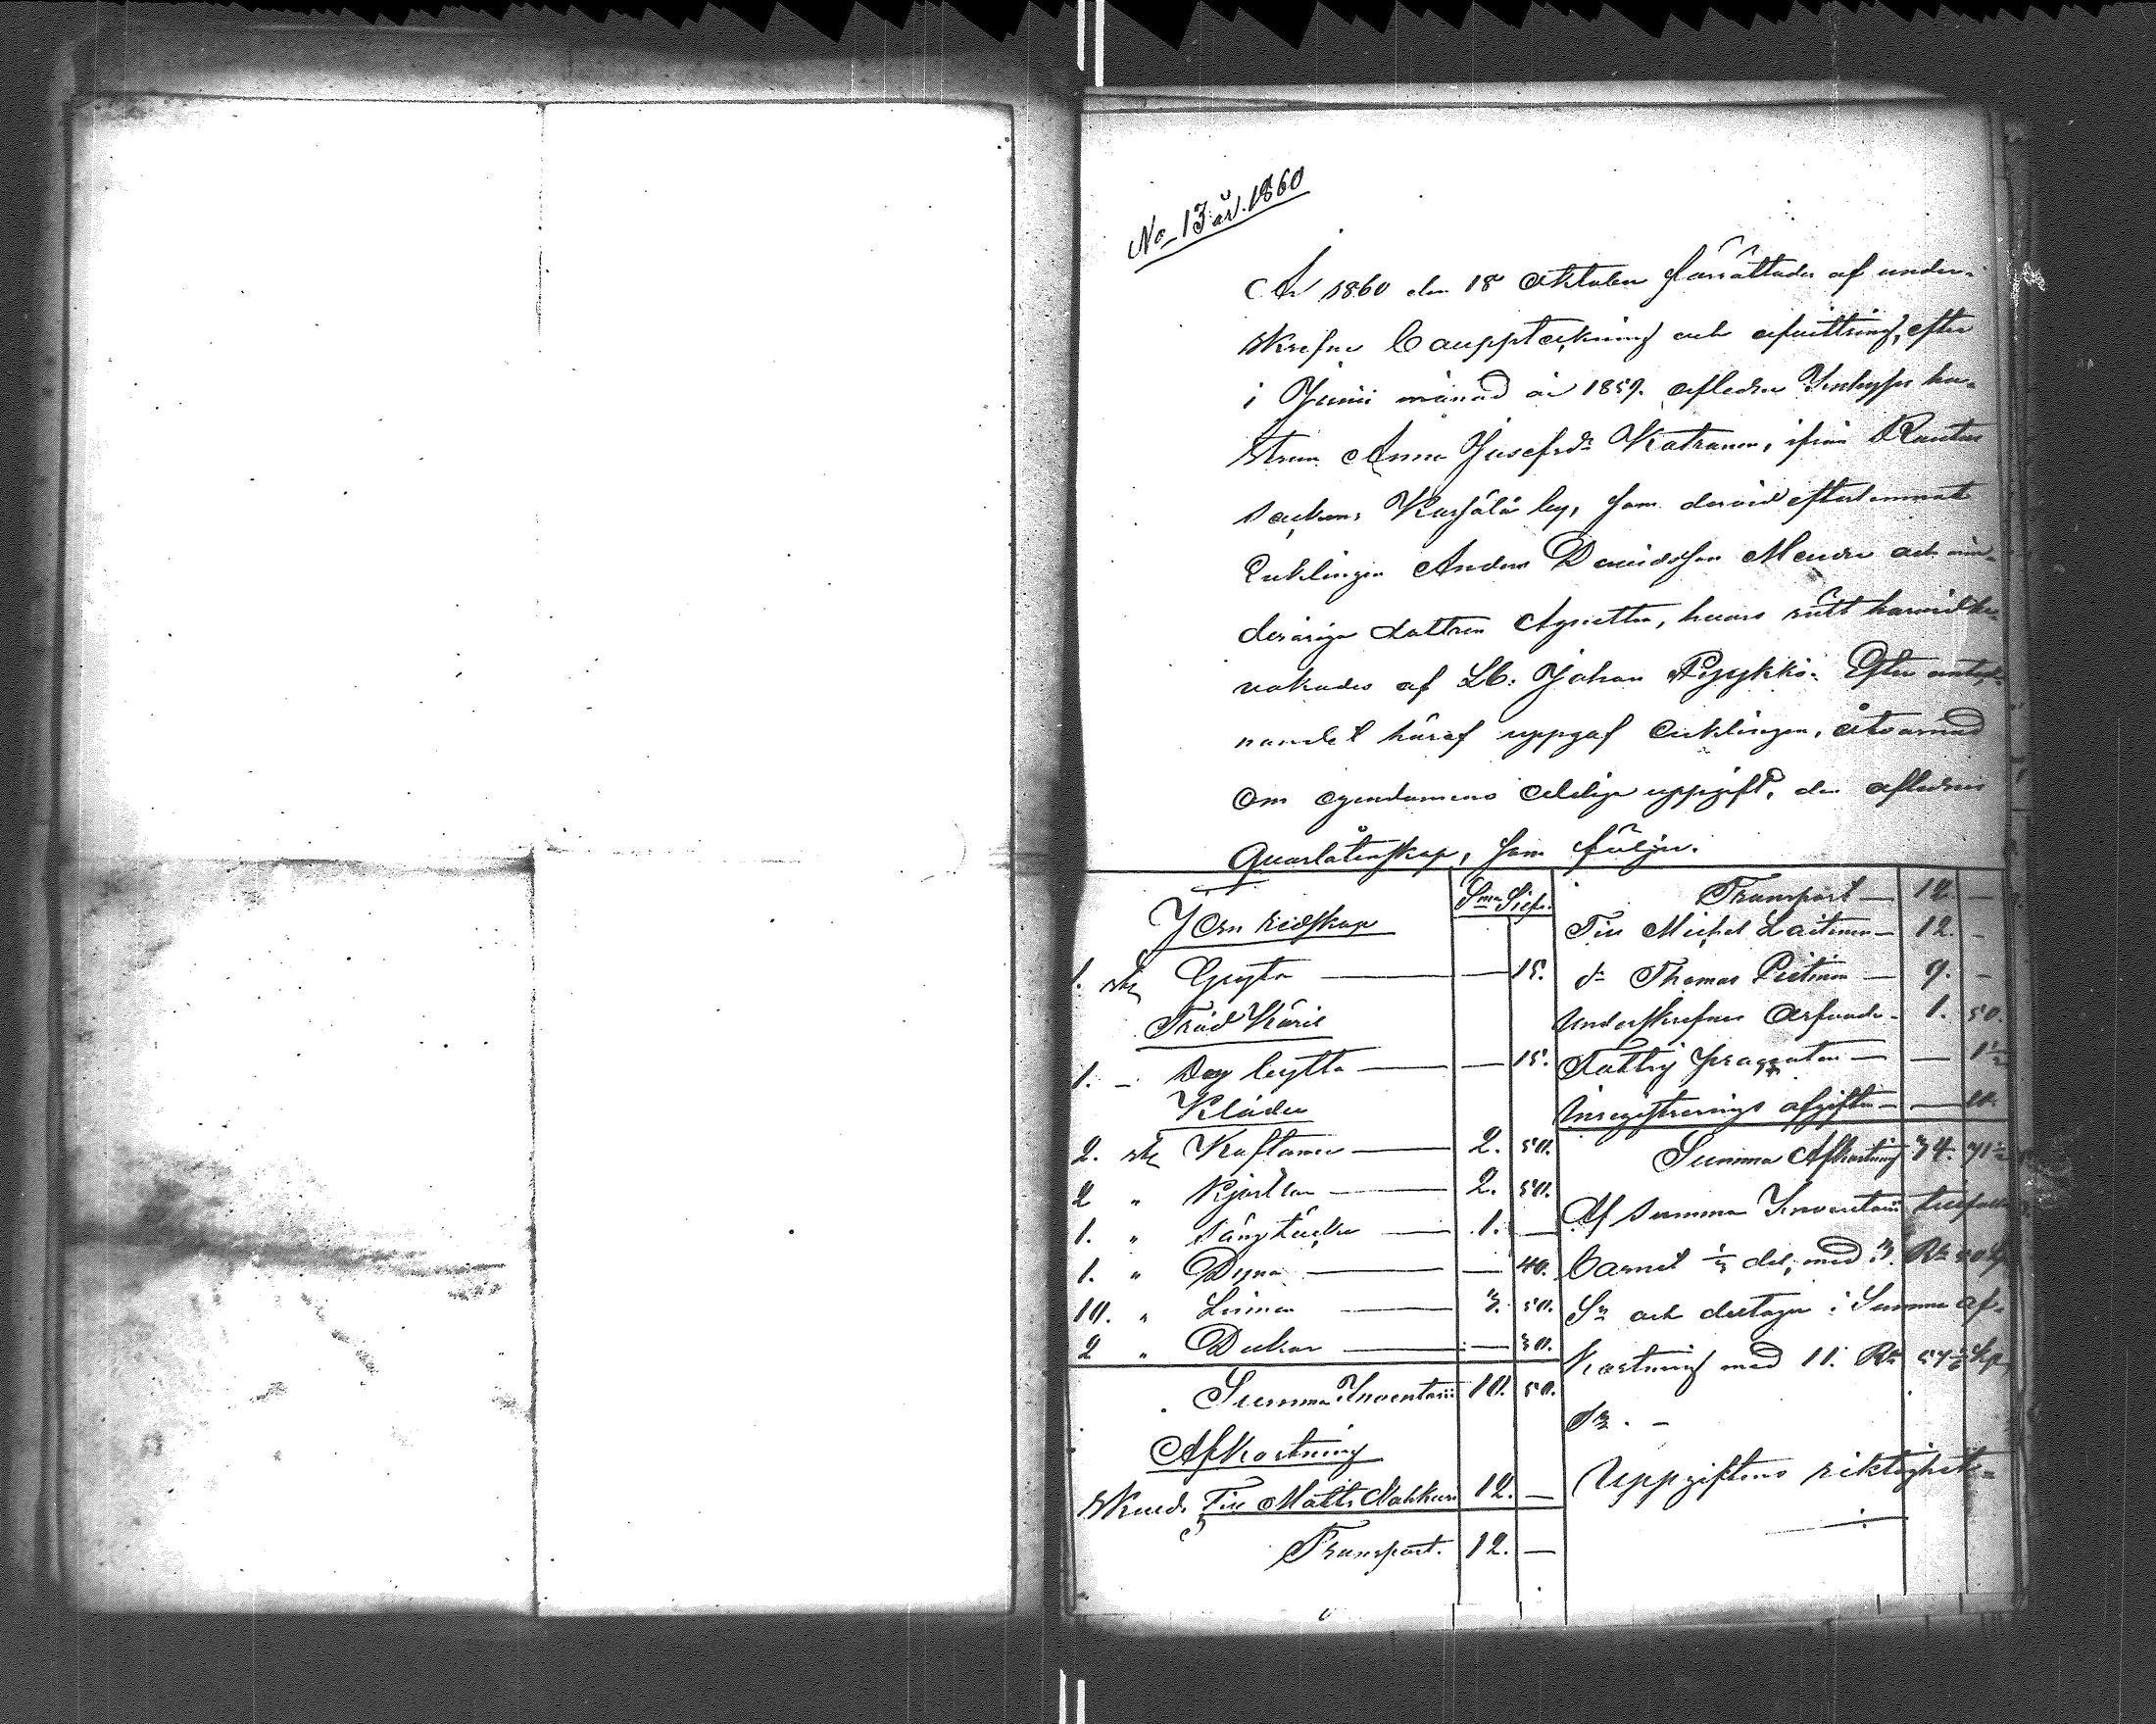 No 13 år 1860
År 1860 den 18 Oktober förrättades af under-
skrefne Bouppteckning och afvittring, efter
i Junii månad år 1859. aflidne Inhyses hu-
strun Anna Josefsdr Katranen, ifrån Rautus
Socken, Karjala by, som dervid efterlemnat
Enklingen Anders Davidsson Meuru och min-
deråriga dottren Agnetta, hvars rätt härvid be-
vakades af Lb: Johan Pyykkö. Efter
nandet häraf uppgaf Enklingen, åtvarnad
om egendomens edeliga uppgift, den aflidnes
Qvarlåtenskap, som följer.
Jern redskap Smr Silfr.
1. stk Gryta — — 15.
Träd Käril
1. — Deg bytta — — 15.
Kläder
2. stk Kaftaner — 2. 50.
2 " Kjortlar — 2. 50.
1. " Sängtäcke — 1. —
1. " Dyna — — 40.
10. " Linnen — 3. 50.
2 " Dukar — — 30.
Summa Inventarii 10. 50.
Afkortning
Skuld. Till Matts Nahkuri 12. —
Transport. 12. —
Transport — 12. —
Till Michel Laitinen — 12. —
do Thomas Pietinen — 9. —
Underskrefnes Arfvode — 1. 50.
Fattig procenten — — 1½
Inregistrerings afgiften — —
Summa Afkortning 34. 71½
Af Summa Inventarii tillfaller
Barnet ⅓ del, med 3. Rbl 50 kp
Sr och deltager i Summa af-
kortning med 11. Rbl 57 kp
Sr. —
Uppgiftens riktighet-